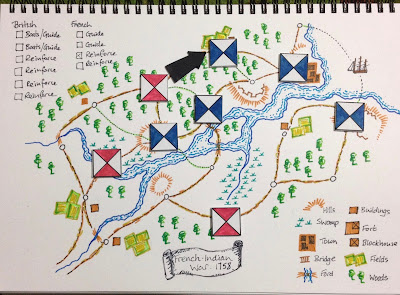 British
Boats/Guide
Boats/Guide
Reinforce
Reinforce
Reinforce
Reinforce
French
Guide
Guide
Reinforce
Reinforce
French-Indian
War 1758
Hills
Swamp
Town
Bridge
Ford
Buildings
Fort
Blockhouse
Fields
Woods